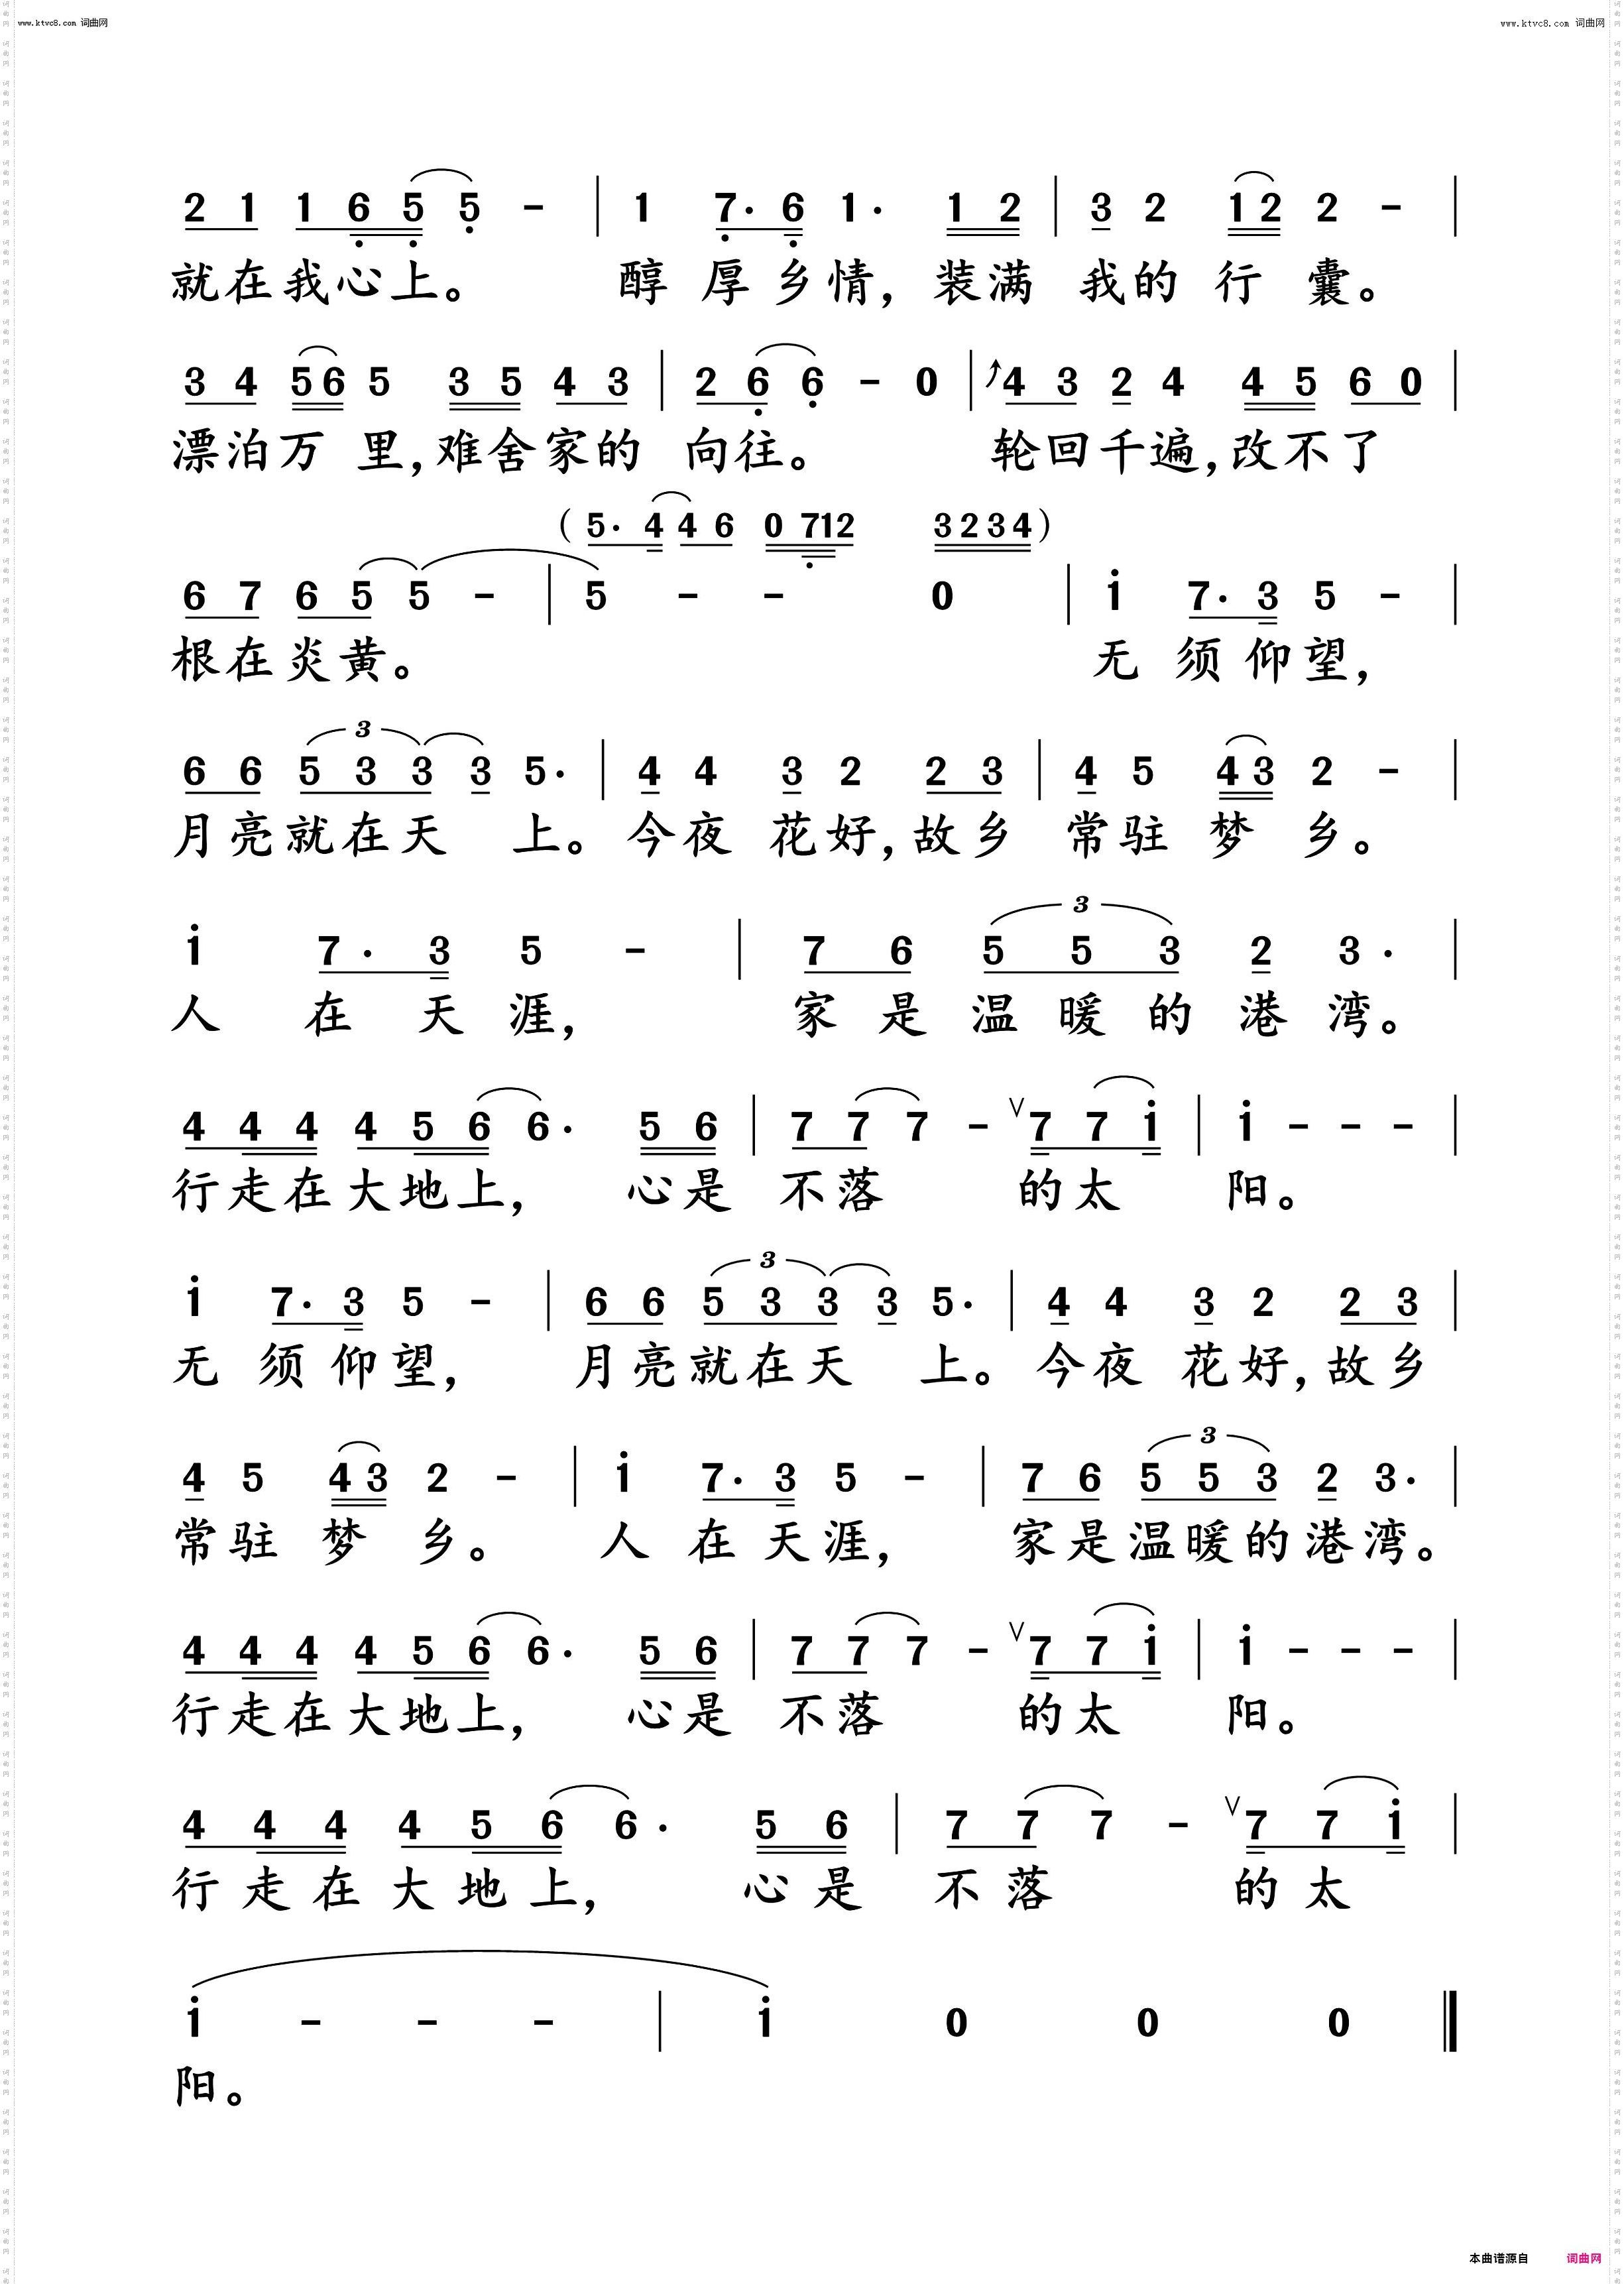 www.ktvc8.com 词曲网 www.ktvc8.com 词曲网
2 1 1 6 5 5 - | 1 7· 6 1· 1 2 | 3 2 1 2 2 - |
就在我心上。 醇厚乡情，装满我的行囊。
3 4 5 6 5 3 5 4 3 | 2 6 6 - 0 | 4 3 2 4 4 5 6 0 |
漂泊万里，难舍家的向往。 轮回千遍，改不了
(5· 4 4 6 0 7 1 2 3 2 3 4)
6 7 6 5 5 - | 5 - - 0 | i 7· 3 5 - |
根在炎黄。 无须仰望，
3
6 6 5 3 3 3 5· | 4 4 3 2 2 3 | 4 5 4 3 2 - |
月亮就在天上。今夜花好，故乡常驻梦乡。
3
i 7· 3 5 - | 7 6 5 5 3 2 3· |
人在天涯， 家是温暖的港湾。
4 4 4 4 5 6 6· 5 6 | 7 7 7 - ∨ 7 7 i | i - - - |
行走在大地上， 心是不落 的太阳。
3
i 7· 3 5 - | 6 6 5 3 3 3 5· | 4 4 3 2 2 3 |
无须仰望， 月亮就在天上。今夜花好，故乡
3
4 5 4 3 2 - | i 7· 3 5 - | 7 6 5 5 3 2 3· |
常驻梦乡。 人在天涯， 家是温暖的港湾。
4 4 4 4 5 6 6· 5 6 | 7 7 7 - ∨ 7 7 i | i - - - |
行走在大地上， 心是不落 的太阳。
4 4 4 4 5 6 6· 5 6 | 7 7 7 - ∨ 7 7 i |
行走在大地上， 心是不落 的太
i - - - | i 0 0 0 ‖
阳。
本曲谱源自 词曲网